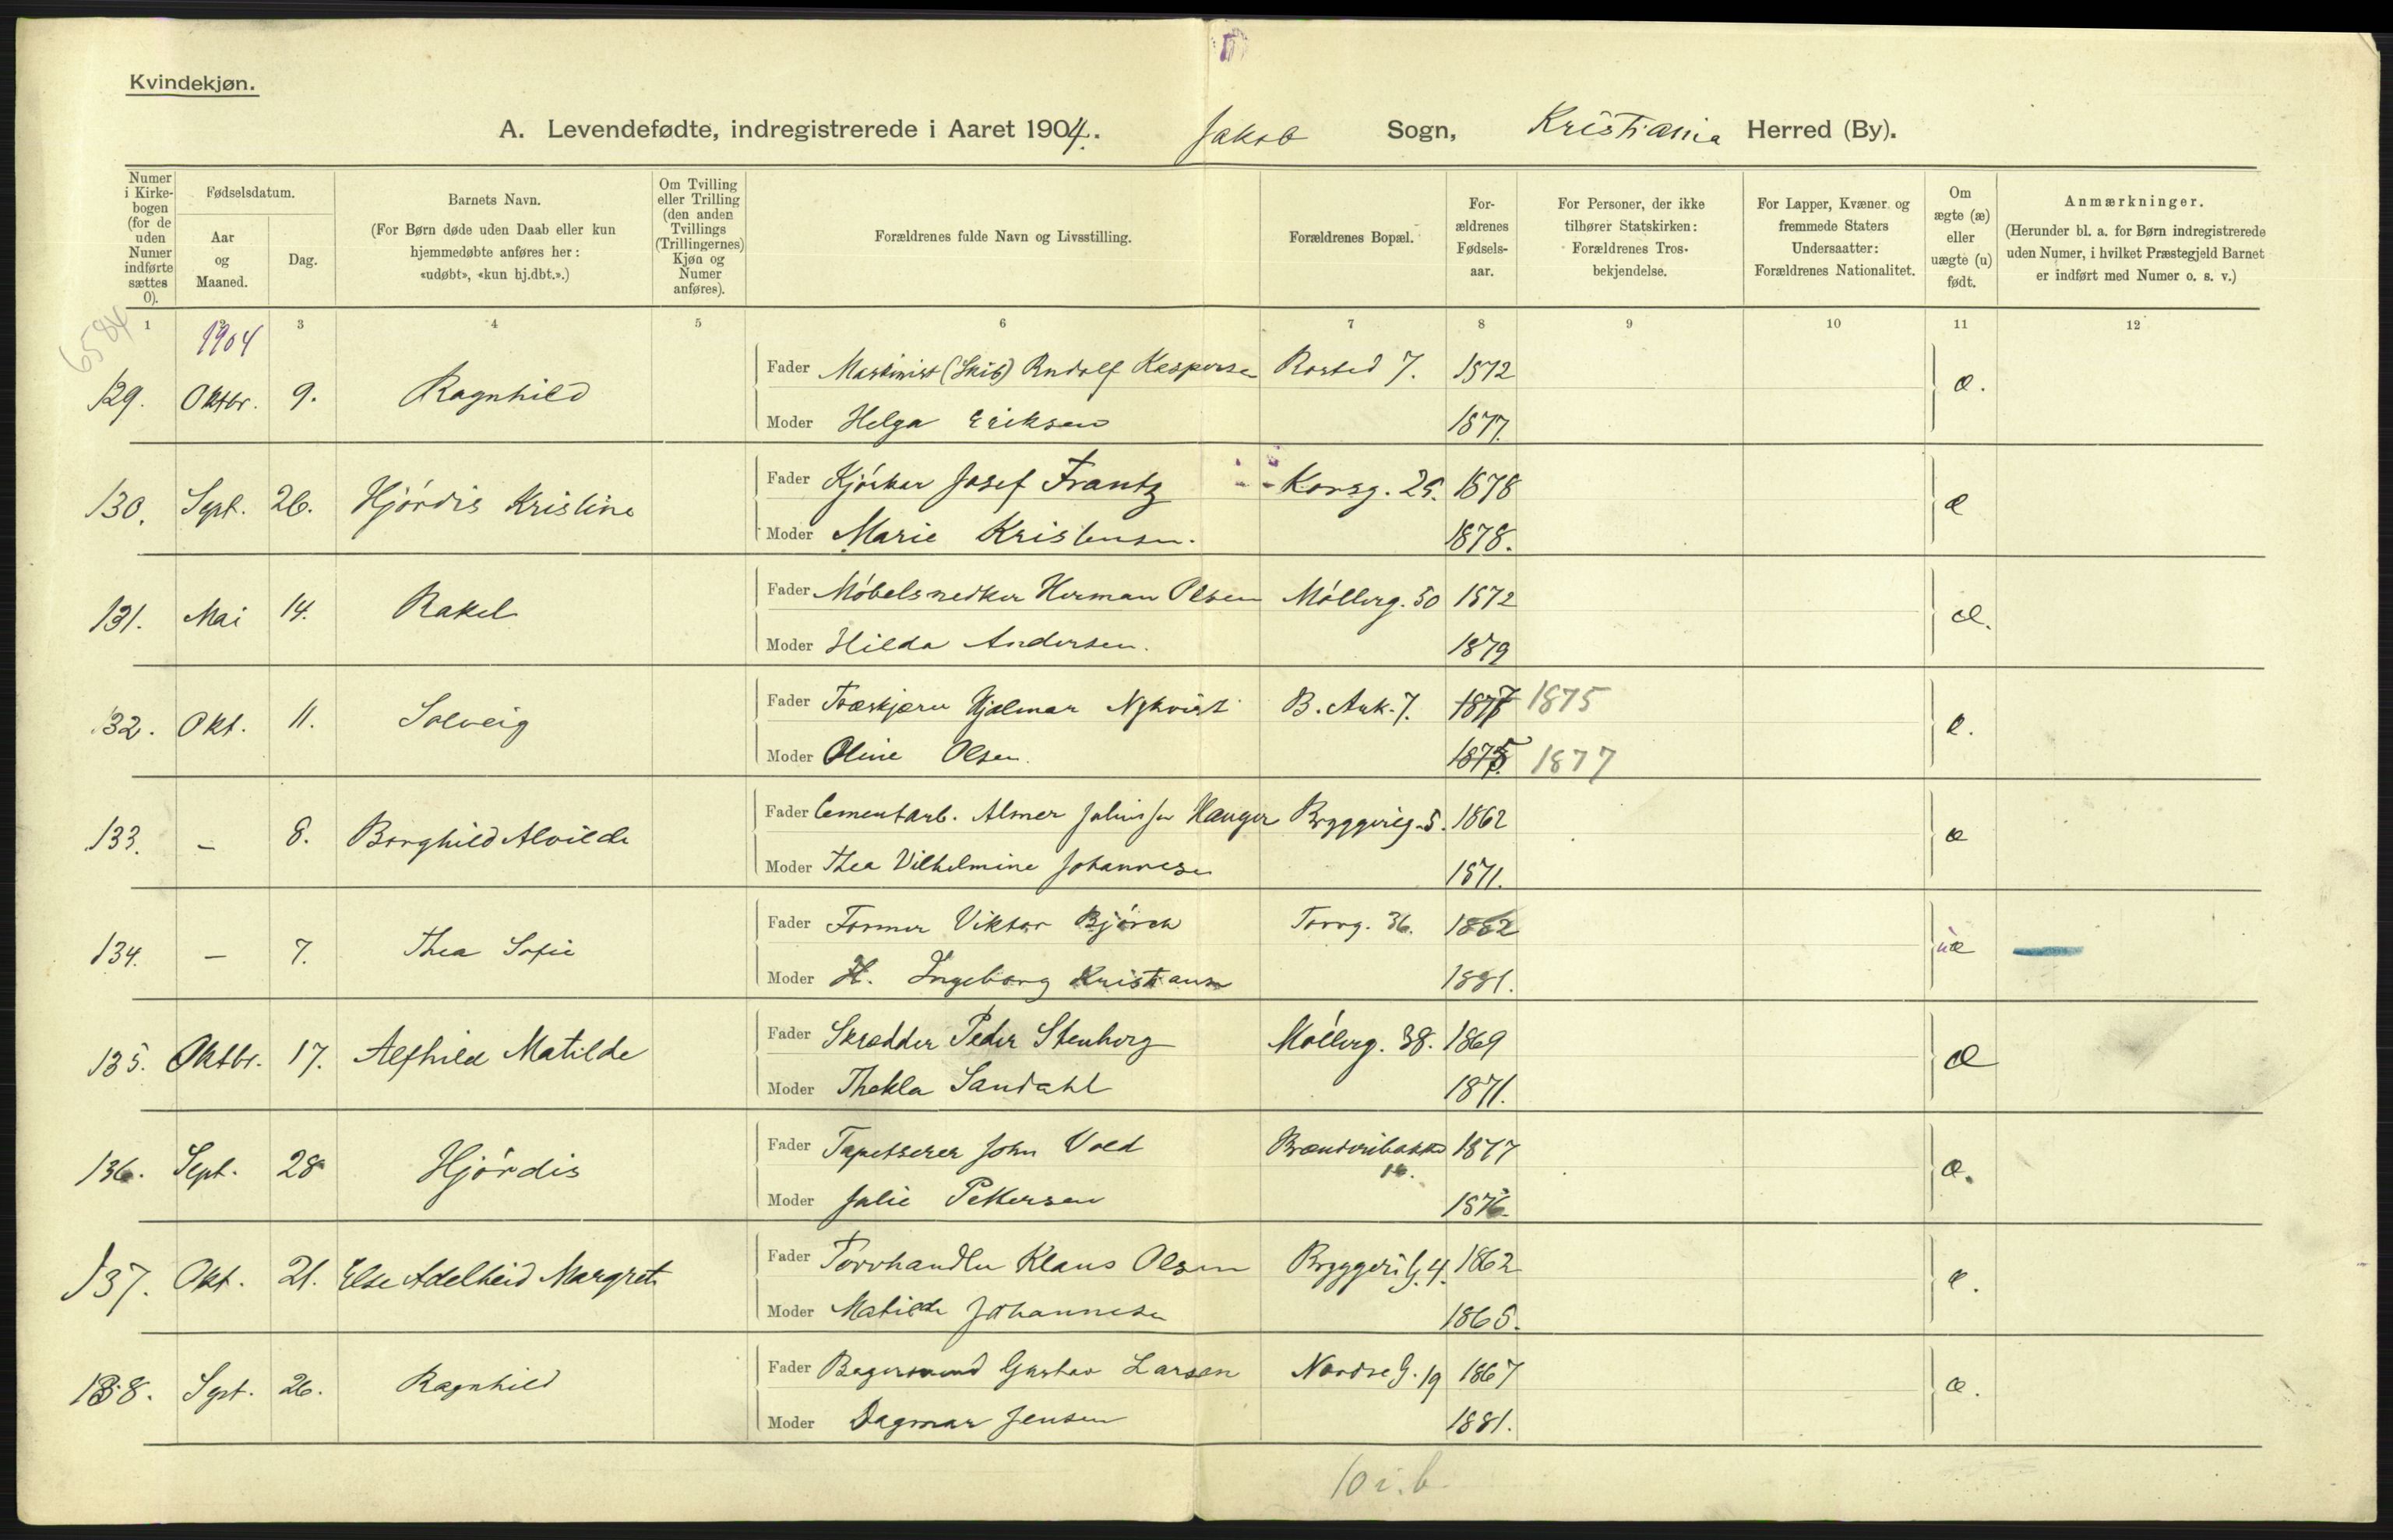 Kvindekjøn.
A. Levendefødte, indregistrerede i Aaret 1904. Jakob Sogn, Kristiania Herred (By).
Numer i Kirkebogen (for de uden Numer indførte sættes 0).
Fødselsdatum.
Aar og Maaned.
Dag.
Barnets Navn.
(For Børn døde uden Daab eller kun hjemmedøbte anføres her: «udøbt», «kun hj.dbt.».)
Om Tvilling eller Trilling (den anden Tvillings (Trillingernes) Kjøn og Numer anføres).
Forældrenes fulde Navn og Livsstilling.
Forældrenes Bopæl.
Forældrenes Fødselsaar.
For Personer, der ikke tilhører Statskirken: Forældrenes Trosbekjendelse.
For Lapper, Kvæner og fremmede Staters Undersaatter: Forældrenes Nationalitet.
Om ægte (æ) eller uægte (u) født.
Anmærkninger.
(Herunder bl. a. for Børn indregistrerede uden Numer, i hvilket Præstegjeld Barnet er indført med Numer o. s. v.)
1 2 3 4 5 6 7 8 9 10 11 12
6584
1904
129. Oktbr. 9. Ragnhild Fader Maskinist (Skib) Rudolf Kaspersen Rosted 7. 1872 æ.
Moder Helga Eriksen 1877.
130. Sept. 26. Hjórdis Kristine Fader Kjórker Josef Frantz Korsg. 25. 1878 æ
Moder Marie Kristensen. 1878.
131. Mai 14. Rakel Fader Móbelsnedker Herman Olsen Móllerg. 50 1872 æ.
Moder Hilda Andersen. 1879
132. Okt. 11. Solveig Fader Træskjærer Hjalmar Nykvist B. Ank. 7. 1877 1875 æ.
Moder Oline Olsen. 1875 1877
133. - 8. Borghild Alvilde Fader Cementarb. Almer Julius Hauger Bryggerig. 5. 1862 æ
Moder Thea Vilhelmine Johannesen 1871.
134. - 7. Thea Sofie Fader Former Viktor Bjórch Torvg. 36. 1882 uæ
Moder H. Ingeborg Kristiansen 1881.
135. Oktbr. 17. Alfhild Matilde Fader Skrædder Peder Stenberg Móllerg. 38. 1869 æ
Moder Thekla Sandahl 1871.
136. Sept. 28 Hjórdis Fader Tapetserer John Vold Brænderibakken 16. 1877 æ.
Moder Julie Pettersen 1876.
137. Okt. 21. Else Adelheid Margrete Fader Torvhandler Klaus Olsen Bryggeri G. 4. 1862 æ.
Moder Matilde Johannesen 1865.
138. Sept. 26. Ragnhild Fader Bagersvend Gustav Larsen Nordre G. 19 1867 æ.
Moder Dagmar Jensen 1881.
10 i. b